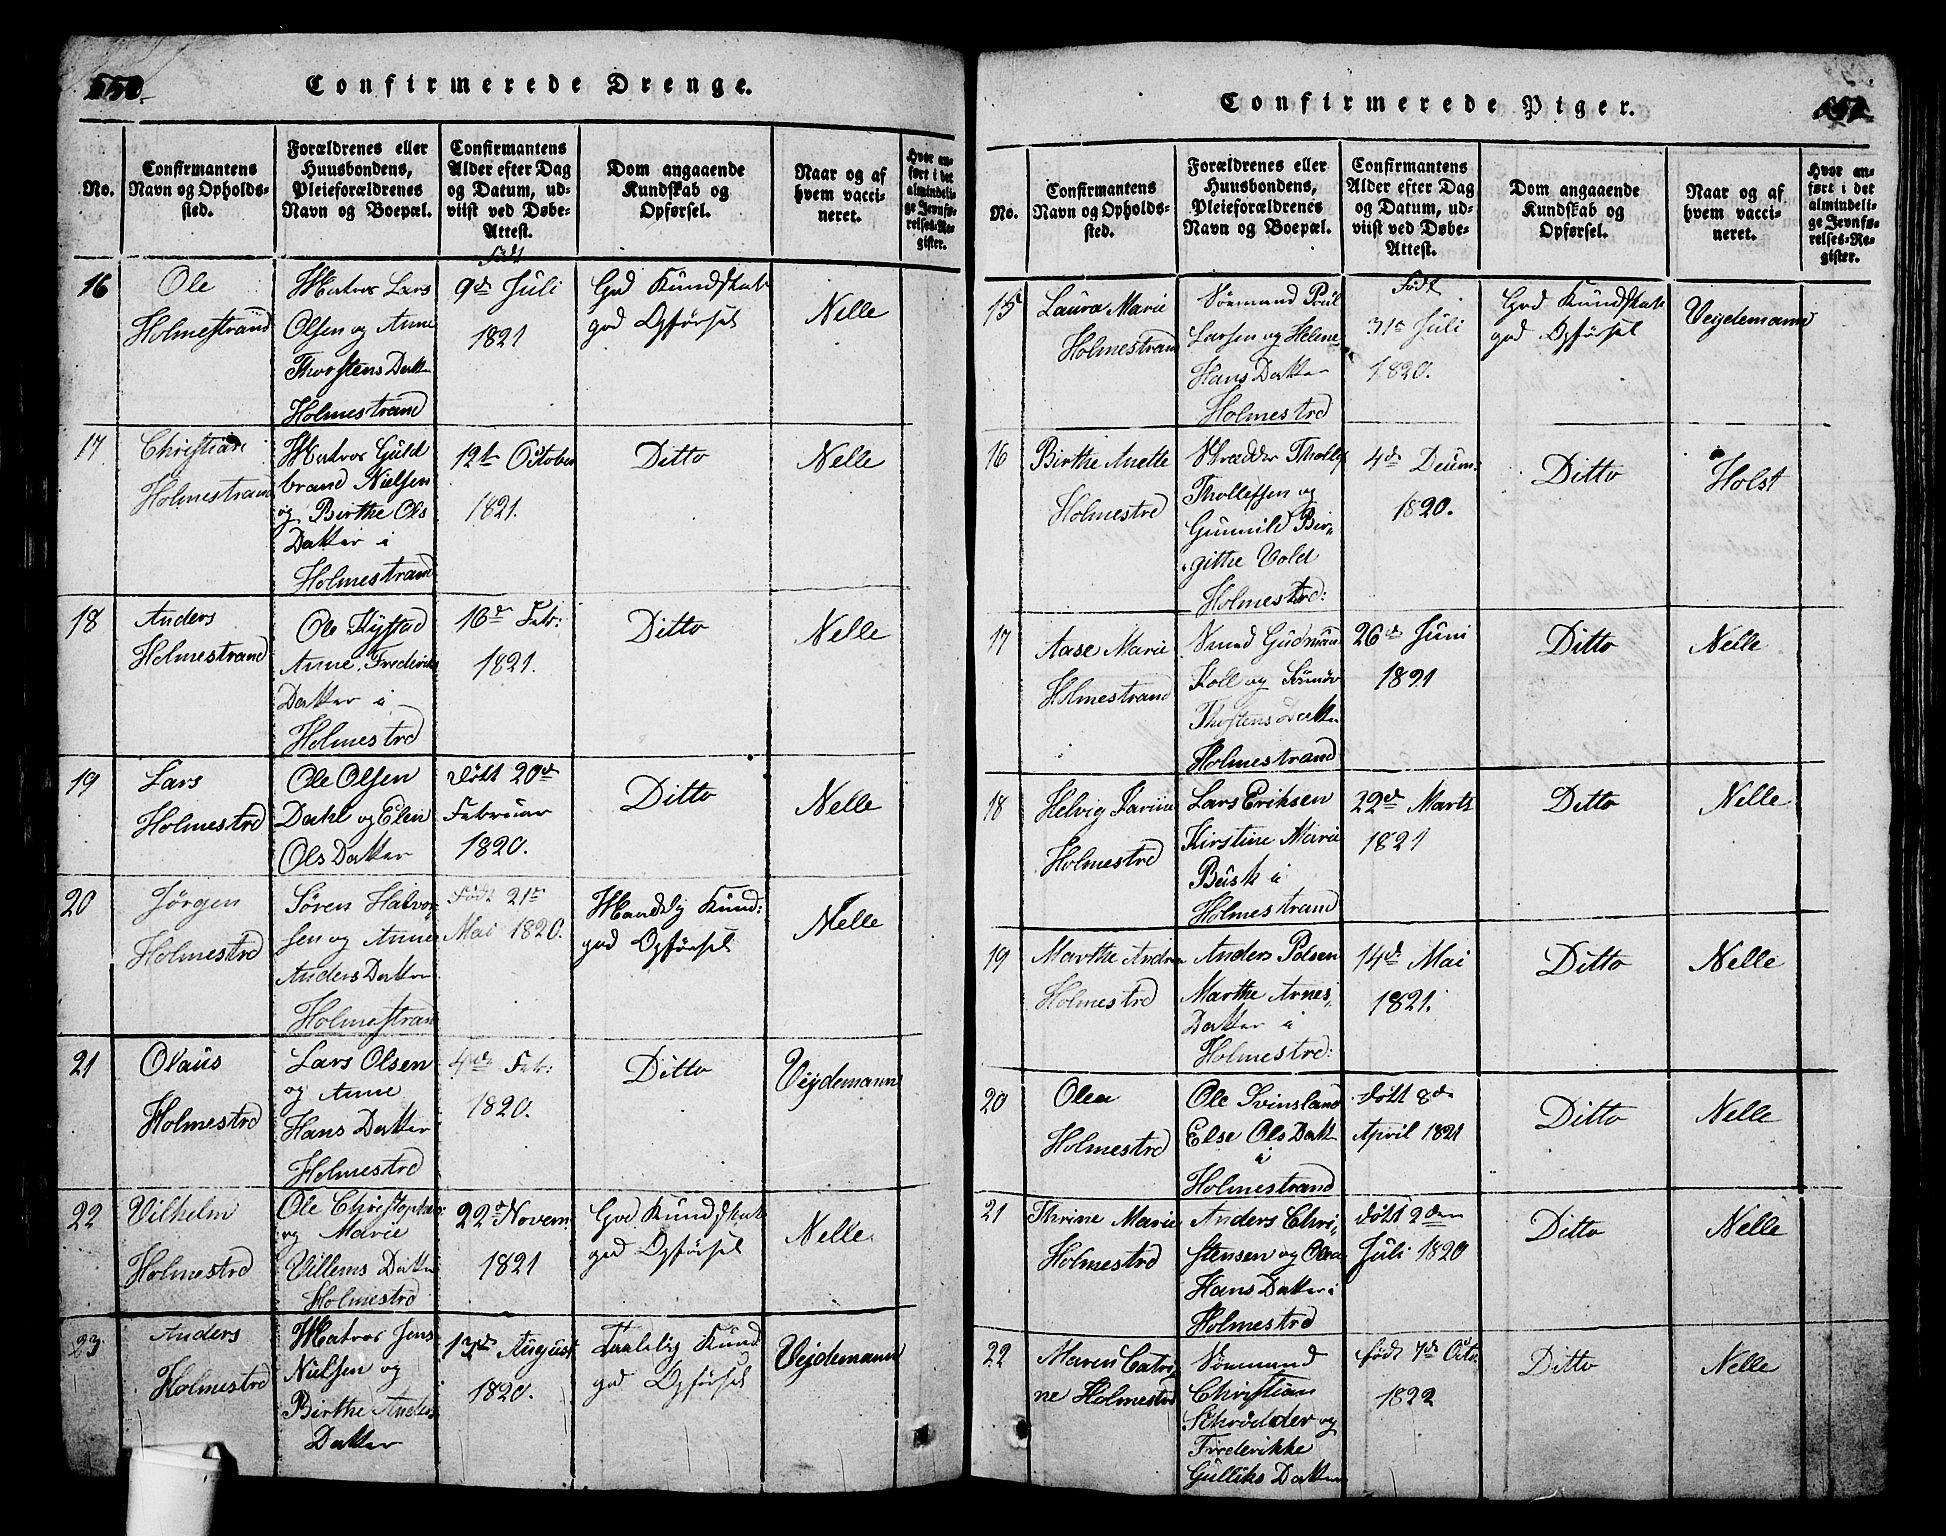 550.
Confirmerede Drenge.
No.
Confirmantens
Navn og Opholds-
sted.
Forældrenes eller
Huusbondens,
Pleieforældrenes
Navn og Boepæl.
Confirmantens
Alder efter Dag
og Datum, ud-
viist ved Døbe-
Attest.
Dom angaaende
Kundskab og
Opførsel.
Naar og af
hvem vacci-
neret.
Hvor an-
ført i det
almindeli-
ge Jevnfø-
relses-Re-
gister.
16
Ole
Holmestrand
Matros Lars
Olsen og Anne
Thorstens Datter
Holmestrand
Født
9de Juli
1821
God Kundskab
god Opførsel
Nelle
17
Christian
Holmestrand
Matros Guld
brand Nielsen
og Birthe Ols
Datter i
Holmestrand
12te October
1821.
Ditto
Nelle
18
Anders
Holmestrand
Ole
Anne Frederiks
Datter i
Holmestrd
16de Febr:
1821.
Ditto
Nelle
19
Lars
Holmestrd
Ole Olsen
Dahl og Elen
Ols Datter
Født 20de
Februar
1820.
Ditto
Nelle
20
Jørgen
Holmestrd
Søren Halvor
sen og Anne
Anders Datter
Holmestrand
Født 21de
Mai 1820.
Maadelig Kund:
god Opførsel
Nelle
21
Olaus
Holmestrd
Lars Olsen
og Anne
Hans Datter
Holmestrd
4de Febr:
1820.
Ditto
Veydemann
22
Vilhelm
Holmestrd
Ole Christophers:
og Marie
Villems Datter
Holmestrd
22de Novem
1821
God Kundskab
god Opførsel
Nelle.
23
Anders
Holmestrd
Matros Jens
Nielsen og
Birthe Anders
Datter
13de August
1820.
Taalelig Kund
god Opførsel
Veydemann
Confirmerede Piger.
551.
No.
Confirmantens
Navn og Opholds-
sted.
Forældrenes eller
Huusbondens,
Pleieforældrenes
Navn og Boepæl.
Confirmantens
Alder efter Dag
og Datum, ud-
viist ved Døbe-
Attest.
Dom angaaende
Kundskab og
Opførsel.
Naar og af
hvem vacci-
neret.
Hvor an-
ført i det
almindeli-
ge Jevnfø-
relses-Re-
gister.
15
Laura Marie
Holmestrand
Sømand Poul
Larsen og Helene
Hans Datter
Holmestrd
Født
31te Juli
1820.
God Kundskab
god Opførsel
Veydemann
16
Birthe Anette
Holmestrd
Skrædder Tholle
Thollefsen og
Gunnild Bir-
githe Vold
Holmestrd:
4de Decem:
1820.
Ditto
Holst
17
Aase Marie
Holmestrand
Smed Gudmund
Koll og
Thostens Datter
Holmestrand
26de Juni
1821
Ditto
Nelle
18
Helvig Karine
Holmestrd
Lars Eriksen
Kirstine Marie
Busk i
Holmestrand
22de Marts
1821
Ditto
Nelle
19
Marthe Andrea
Holmestrd
Anders Polsen
Marthe Arnes
Datter i
Holmestrd:
14de Mai
1821.
Ditto
Nelle
20
Olea
Holmestrd
Ole Svinsland
Else Ols Datt
i
Holmestrand
Født 8de
April 1821
Ditto
Nelle
21
Thrine Marie
Holmestrd
Anders Chri-
stensen og Olea
Hans Datter i
Holmestrd
Født 2den
Juli 1820
Ditto
Nelle
22
Maren Catri
ne Holmestrd
Sømand
Christian
Schrødder og
Frederikke
Gulliks Datter
født 7de Octo.
1822
Ditto
Nelle